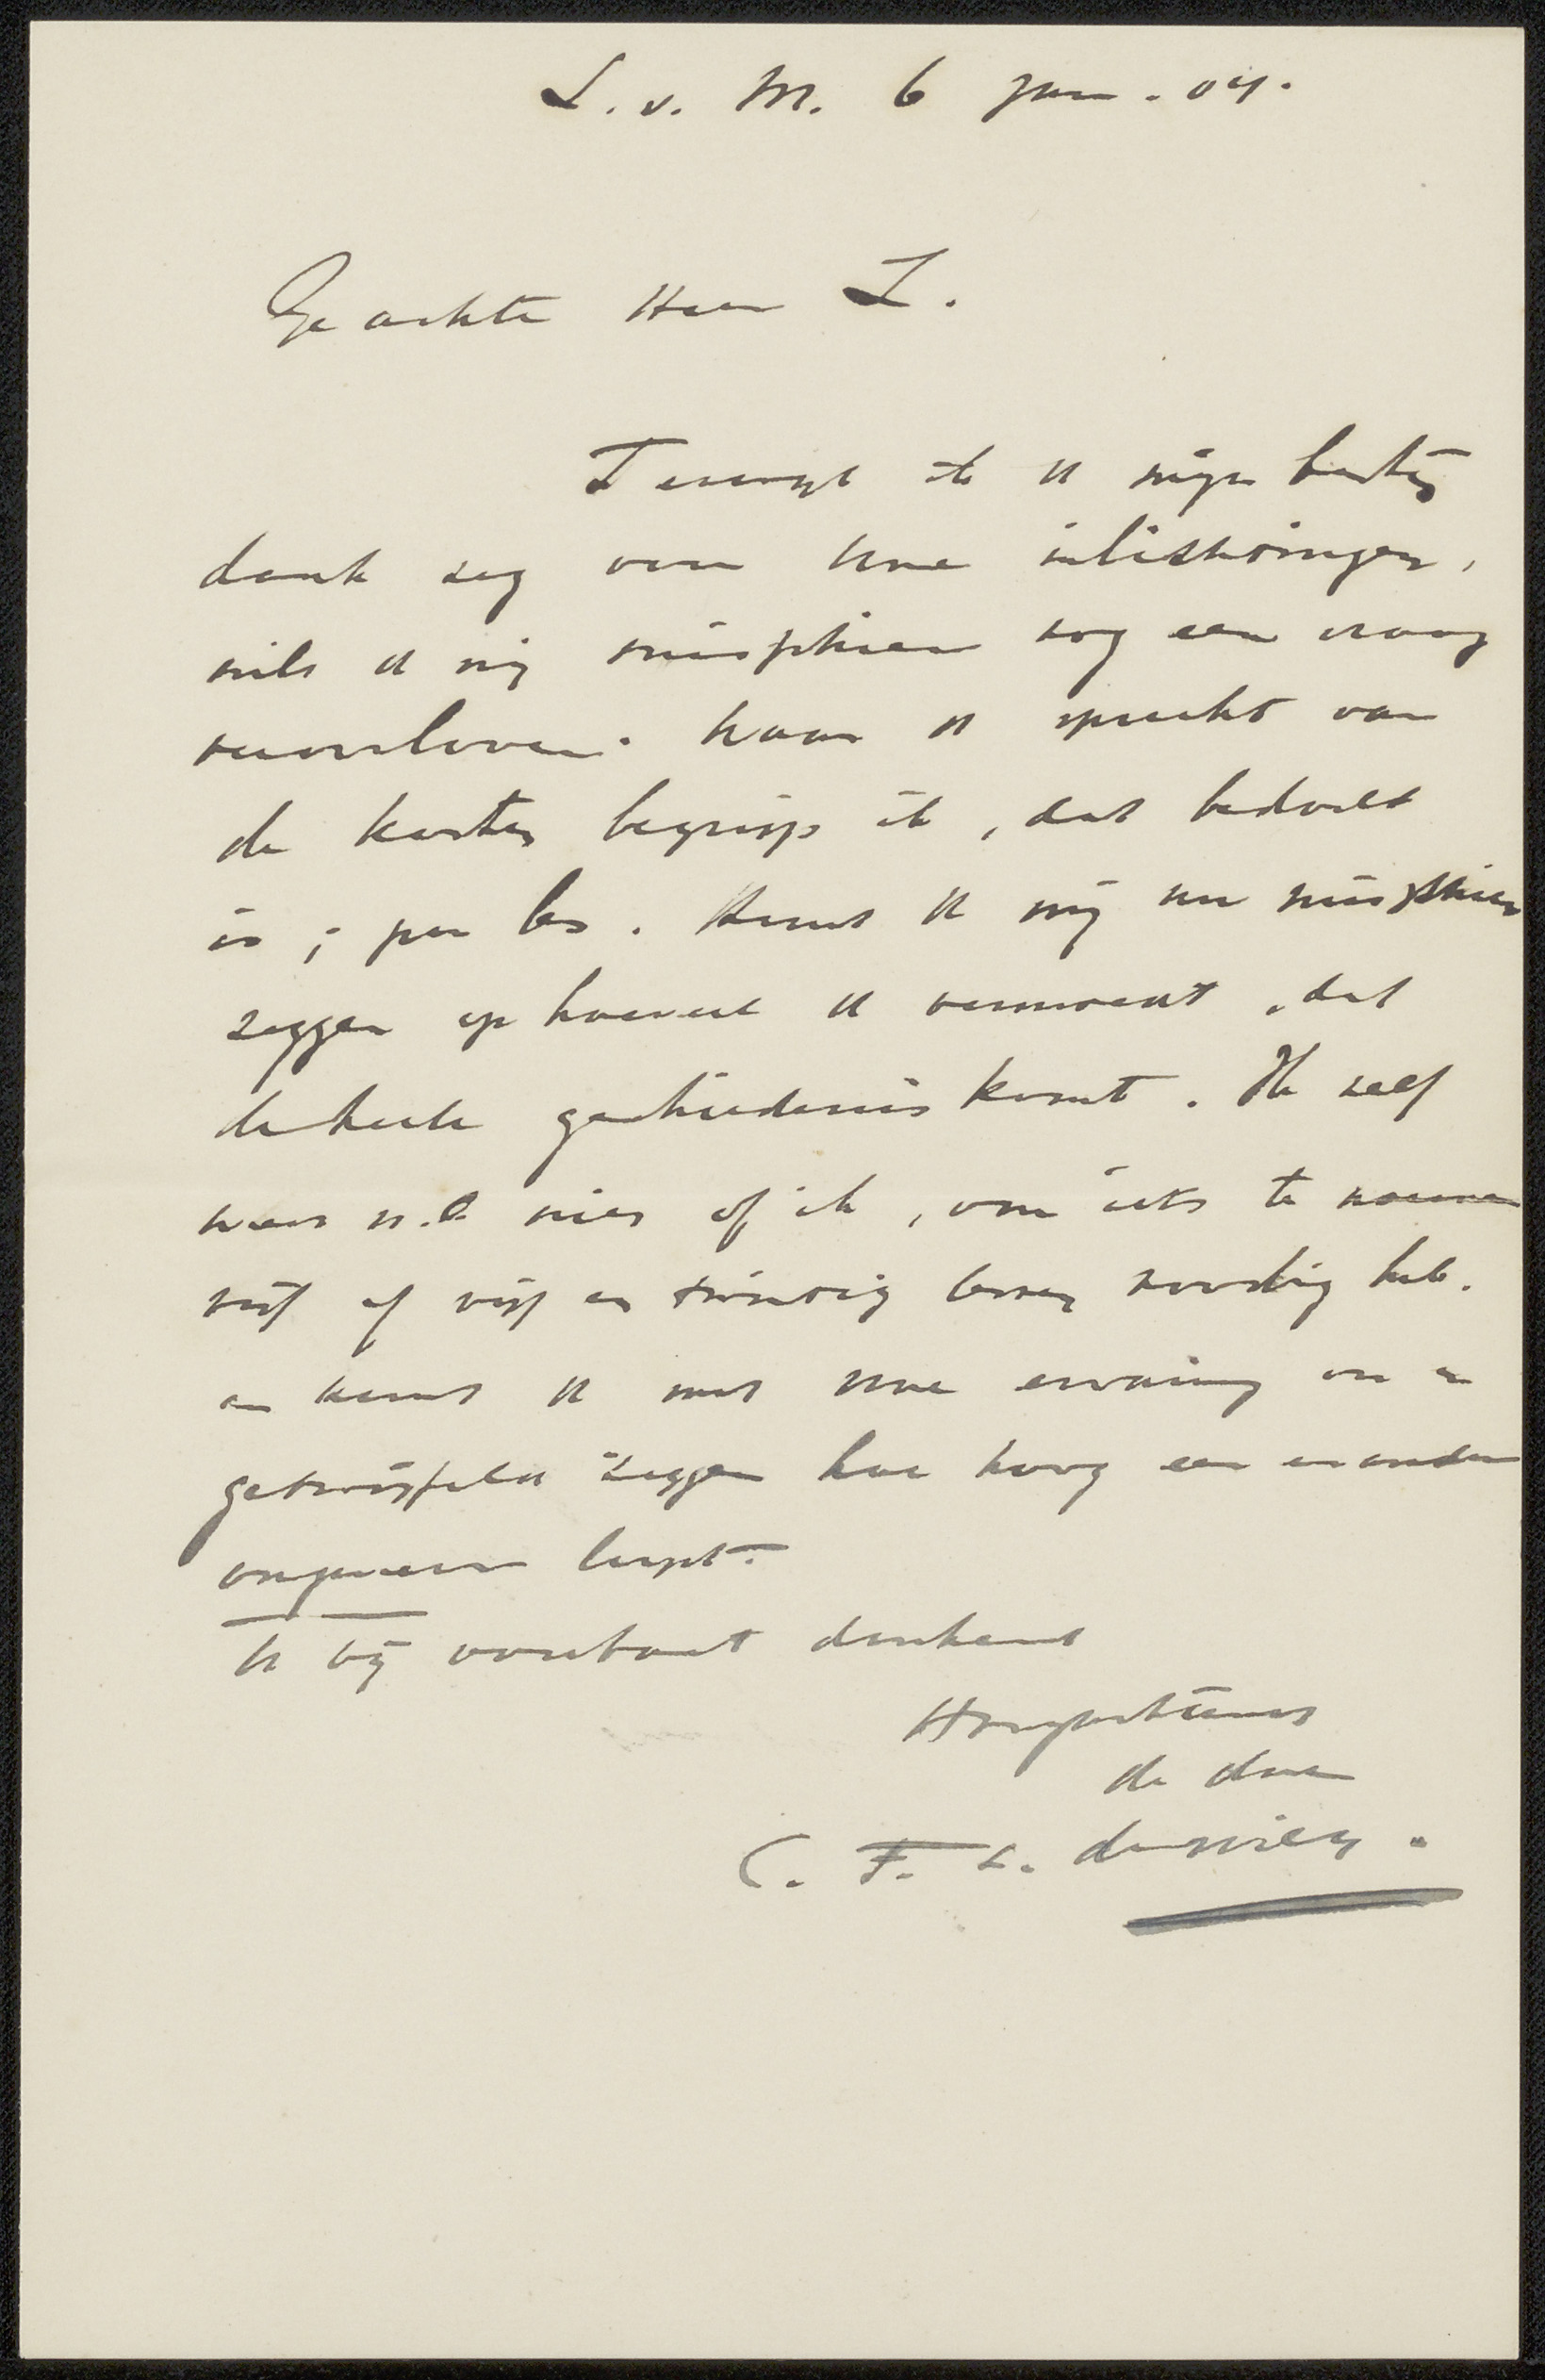 L. v. M. 6 Jan. 04.
Geachte Heer L.
Terwijl ik U mijn hartig
dank zeg voor Uwe inlichtingen,
wilt U mij misschien nog een vraag
veroorloven. Waar U spreekt van
de kosten begrijp ik, dat bedoeld
is; per les. Kunt U mij nu misschien
zeggen op hoeveel U vermoedt, dat
de heele geschiedenis komt. Ik zelf
weet n.l. niet of ik, om iets te noemen
vijf of vijf en twintig lessen noodig heb.
en kunt U met Uwe ervaring on
getwijfeld zeggen hoe hoog een en ander
ongeveer loopt.
U bij voorbaat dankend
Hoogachtend
de Uwe
C. F. L. de Wild.